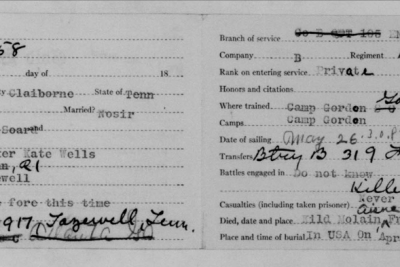 58
day of 18
Claiborne State of Tenn
Married? Nosir
Soard and
ter Kate Wells
R1
ewell
e fore this time
917, Tazewell, Tenn.
Branch of service
Company B Regiment
Rank on entering service Private
Honors and citations
Where trained Camp Gordon
Camps Camp Gordon
Date of sailing May 26
Transfers Btry B 319
Battles engaged in Do not know
Kille
Casualties (including taken prisoner) Never
Died, date and place Kild Molain Fr
Place and time of burial In USA On Apr